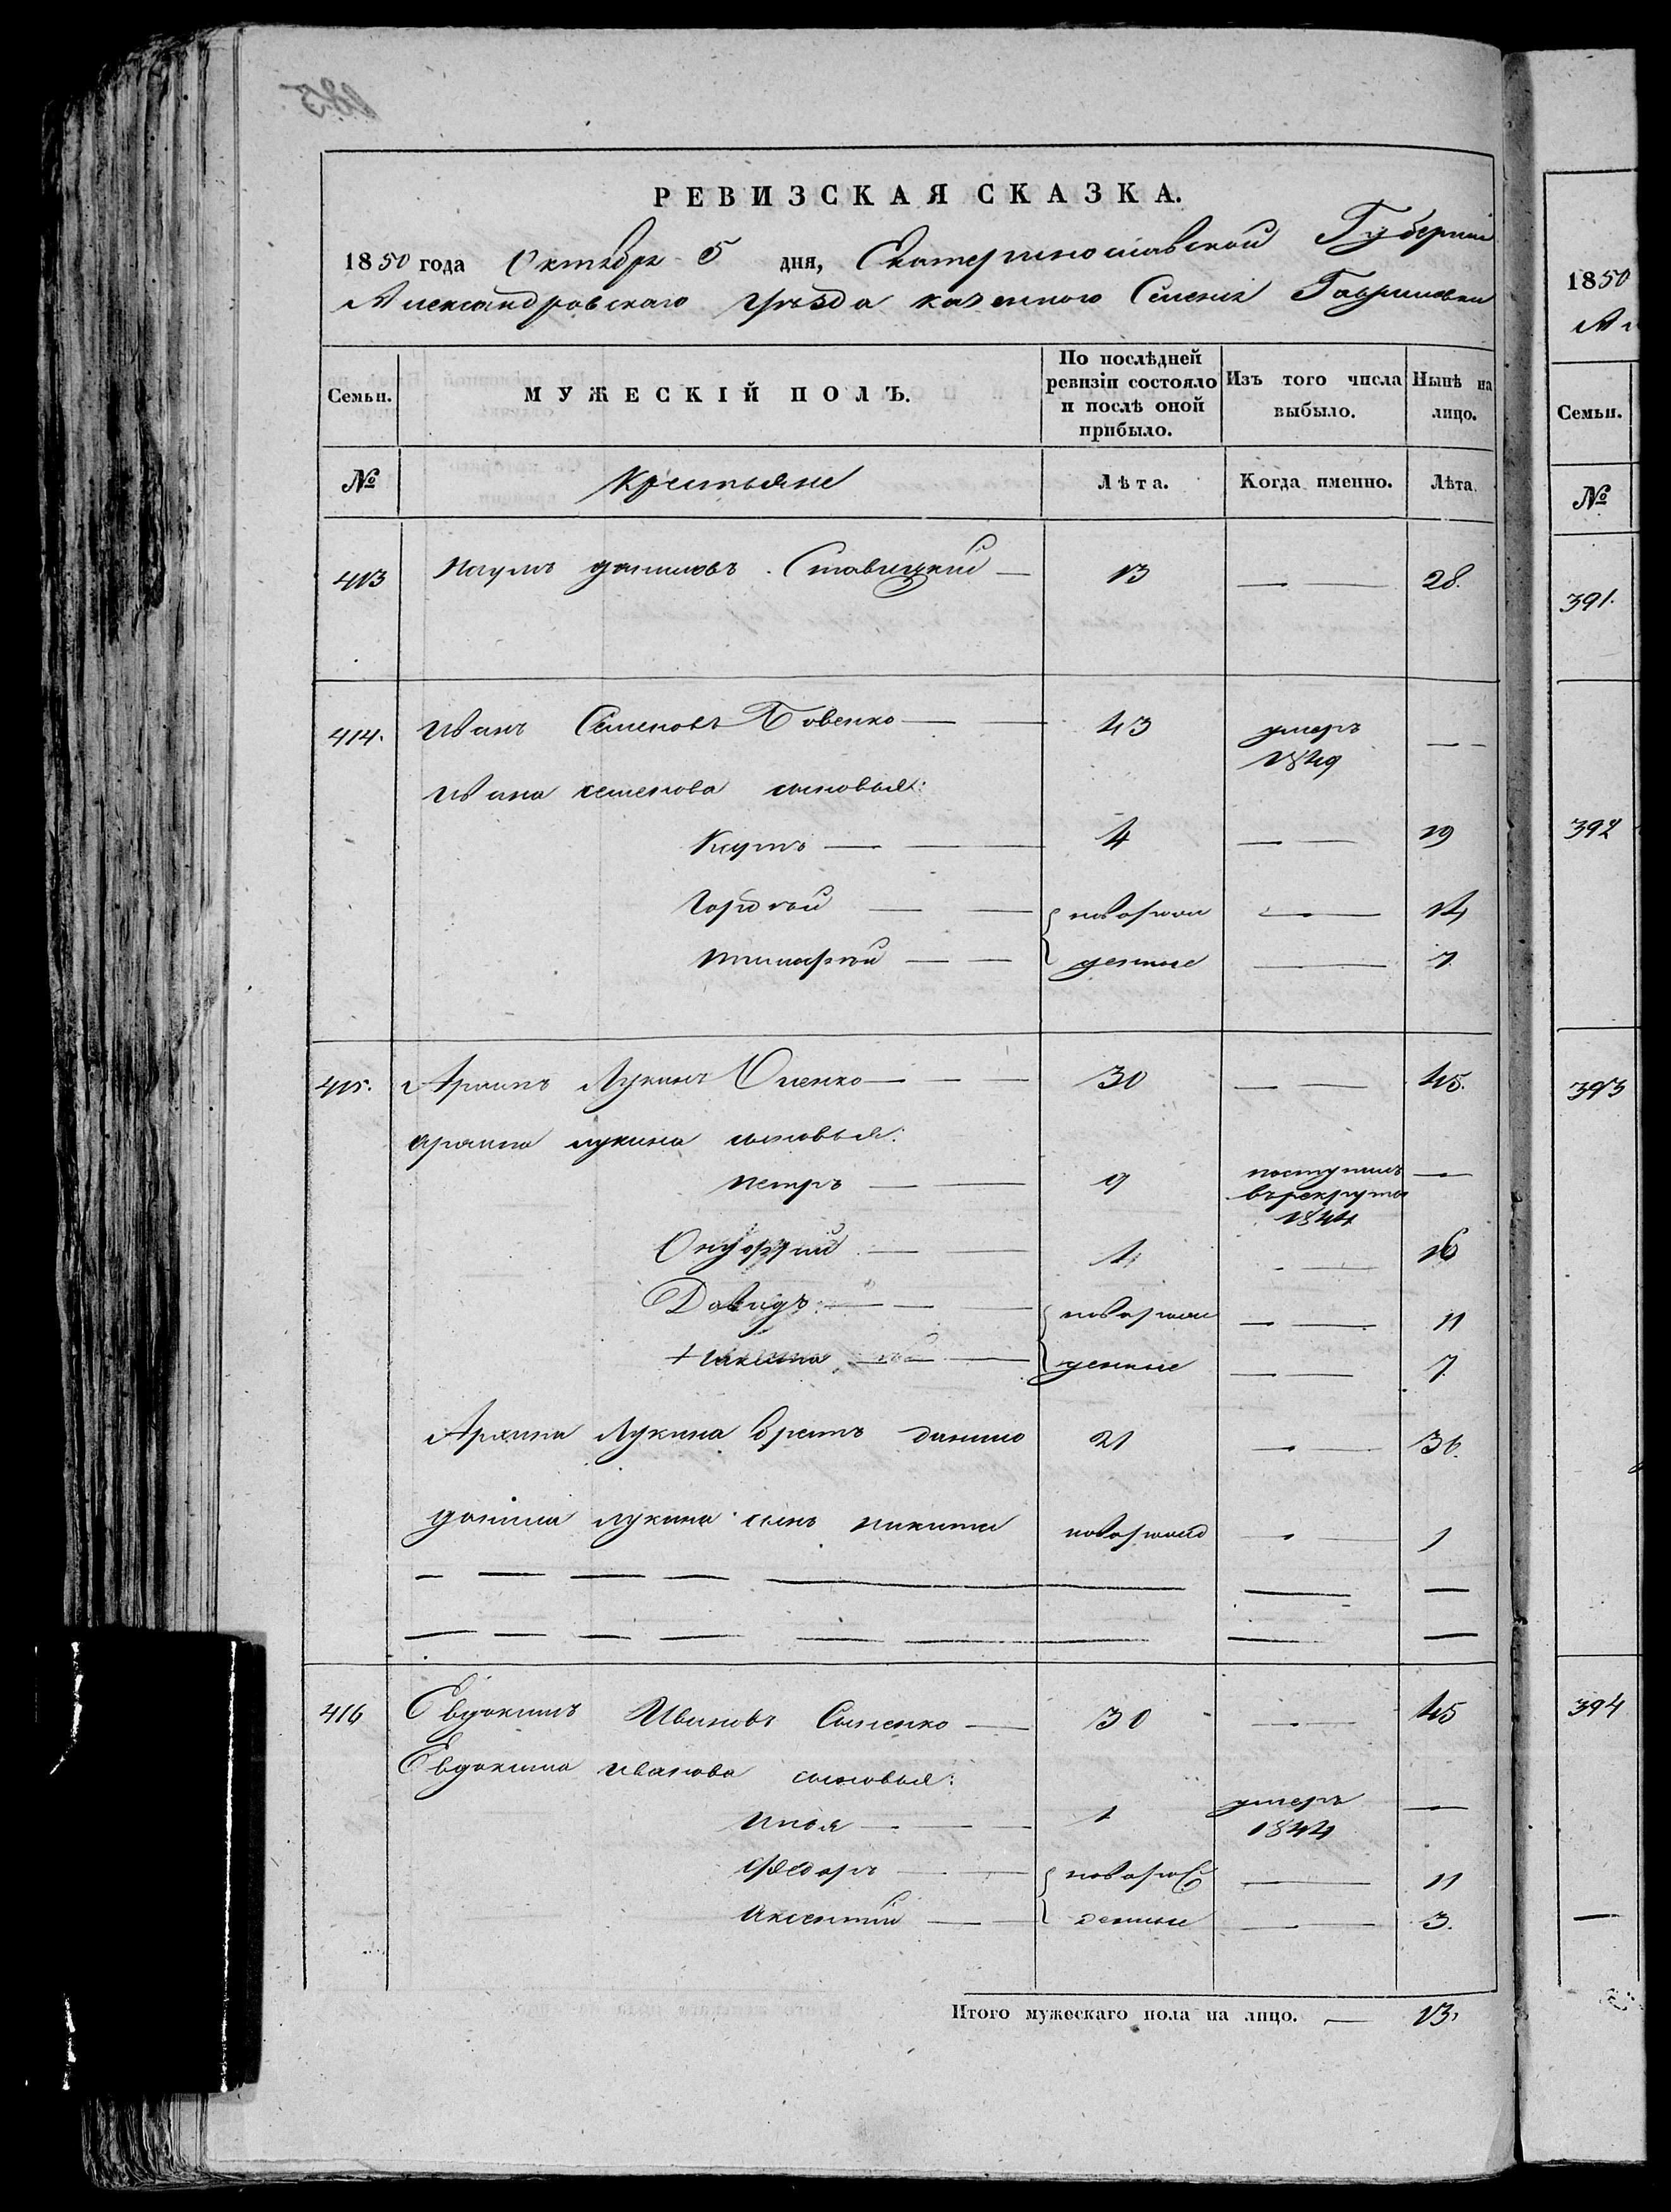 РЕВИЗСКАЯ СКАЗКА.
1850 года Октября 5 дня, Екатеринославской Губернии
Александровскаго уѣзда казенного Селенія Гавриловки
Семьи. МУЖЕСКІЙ ПОЛЪ. По послѣдней ревизіи состояло и послѣ оной прибыло. Изъ того числа выбыло. Нынѣ на лицо.
№ Крестьяне Лѣта. Когда именно. Лѣта.
413 Наумъ Даниловъ Ставицкий — 13 — — 28.
414. Иванъ Семеновъ Бовенко — — 43 умеръ 1849 — —
Ивана Семенова сыновья:
Наумъ — — 4 — — 19
Гордѣй — — новорож — — 14
Тимофѣй — — денные — 7
415. Архипъ Лукинъ — — — 30 — — 45.
Архипа Лукина сыновья:
Петръ — — 9 поступилъ въ рекруты 1844 —
Онуфрий — — 1 — — 16
Давидъ — — — новорож — — 11
Никита — — — денные — — 7
Архипа Лукина братъ Данило 21 — — 36.
Данила Лукина сынъ Никита новорожд — — 1
416 Евдокимъ Ивановъ — 30 — — 45
Евдокима Иванова сыновья:
Илья — — 1 умеръ 1844 —
Федоръ — — новорож — 11
Аксентий — — денные — — 3.
Итого мужескаго пола на лицо. — 13.
185
1850
Семьи.
№
391.
392
393
394